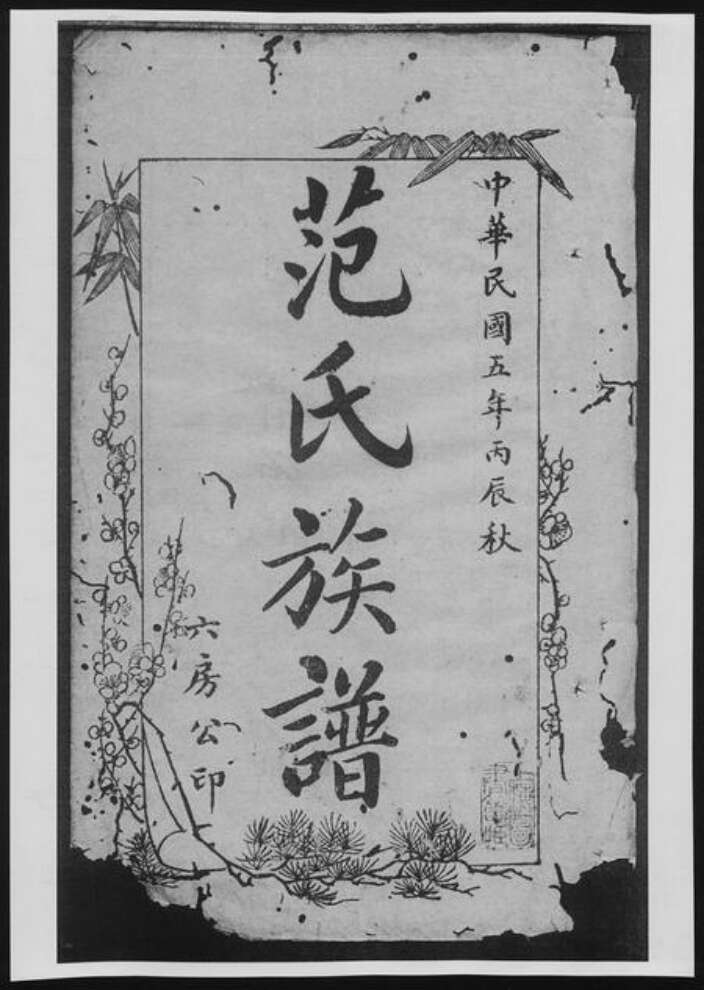 中華民國五年丙辰秋
范氏族譜
六房公印